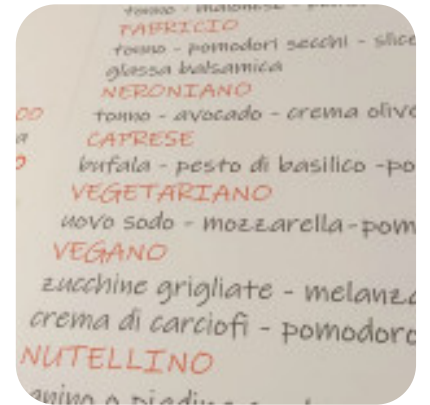 tonno - maionese -
FABRICIO
tonno - pomodori secchi - slice
glassa balsamica
NERONIANO
DO
tonno - avocado - crema olive
a
CAPRESE
O
bufala - pesto di basilico -po
VEGETARIANO
uovo sodo - mozzarella-pom
VEGANO
zucchine grigliate - melanza
crema di carciofi - pomodoro
NUTELLINO
panino o piadina